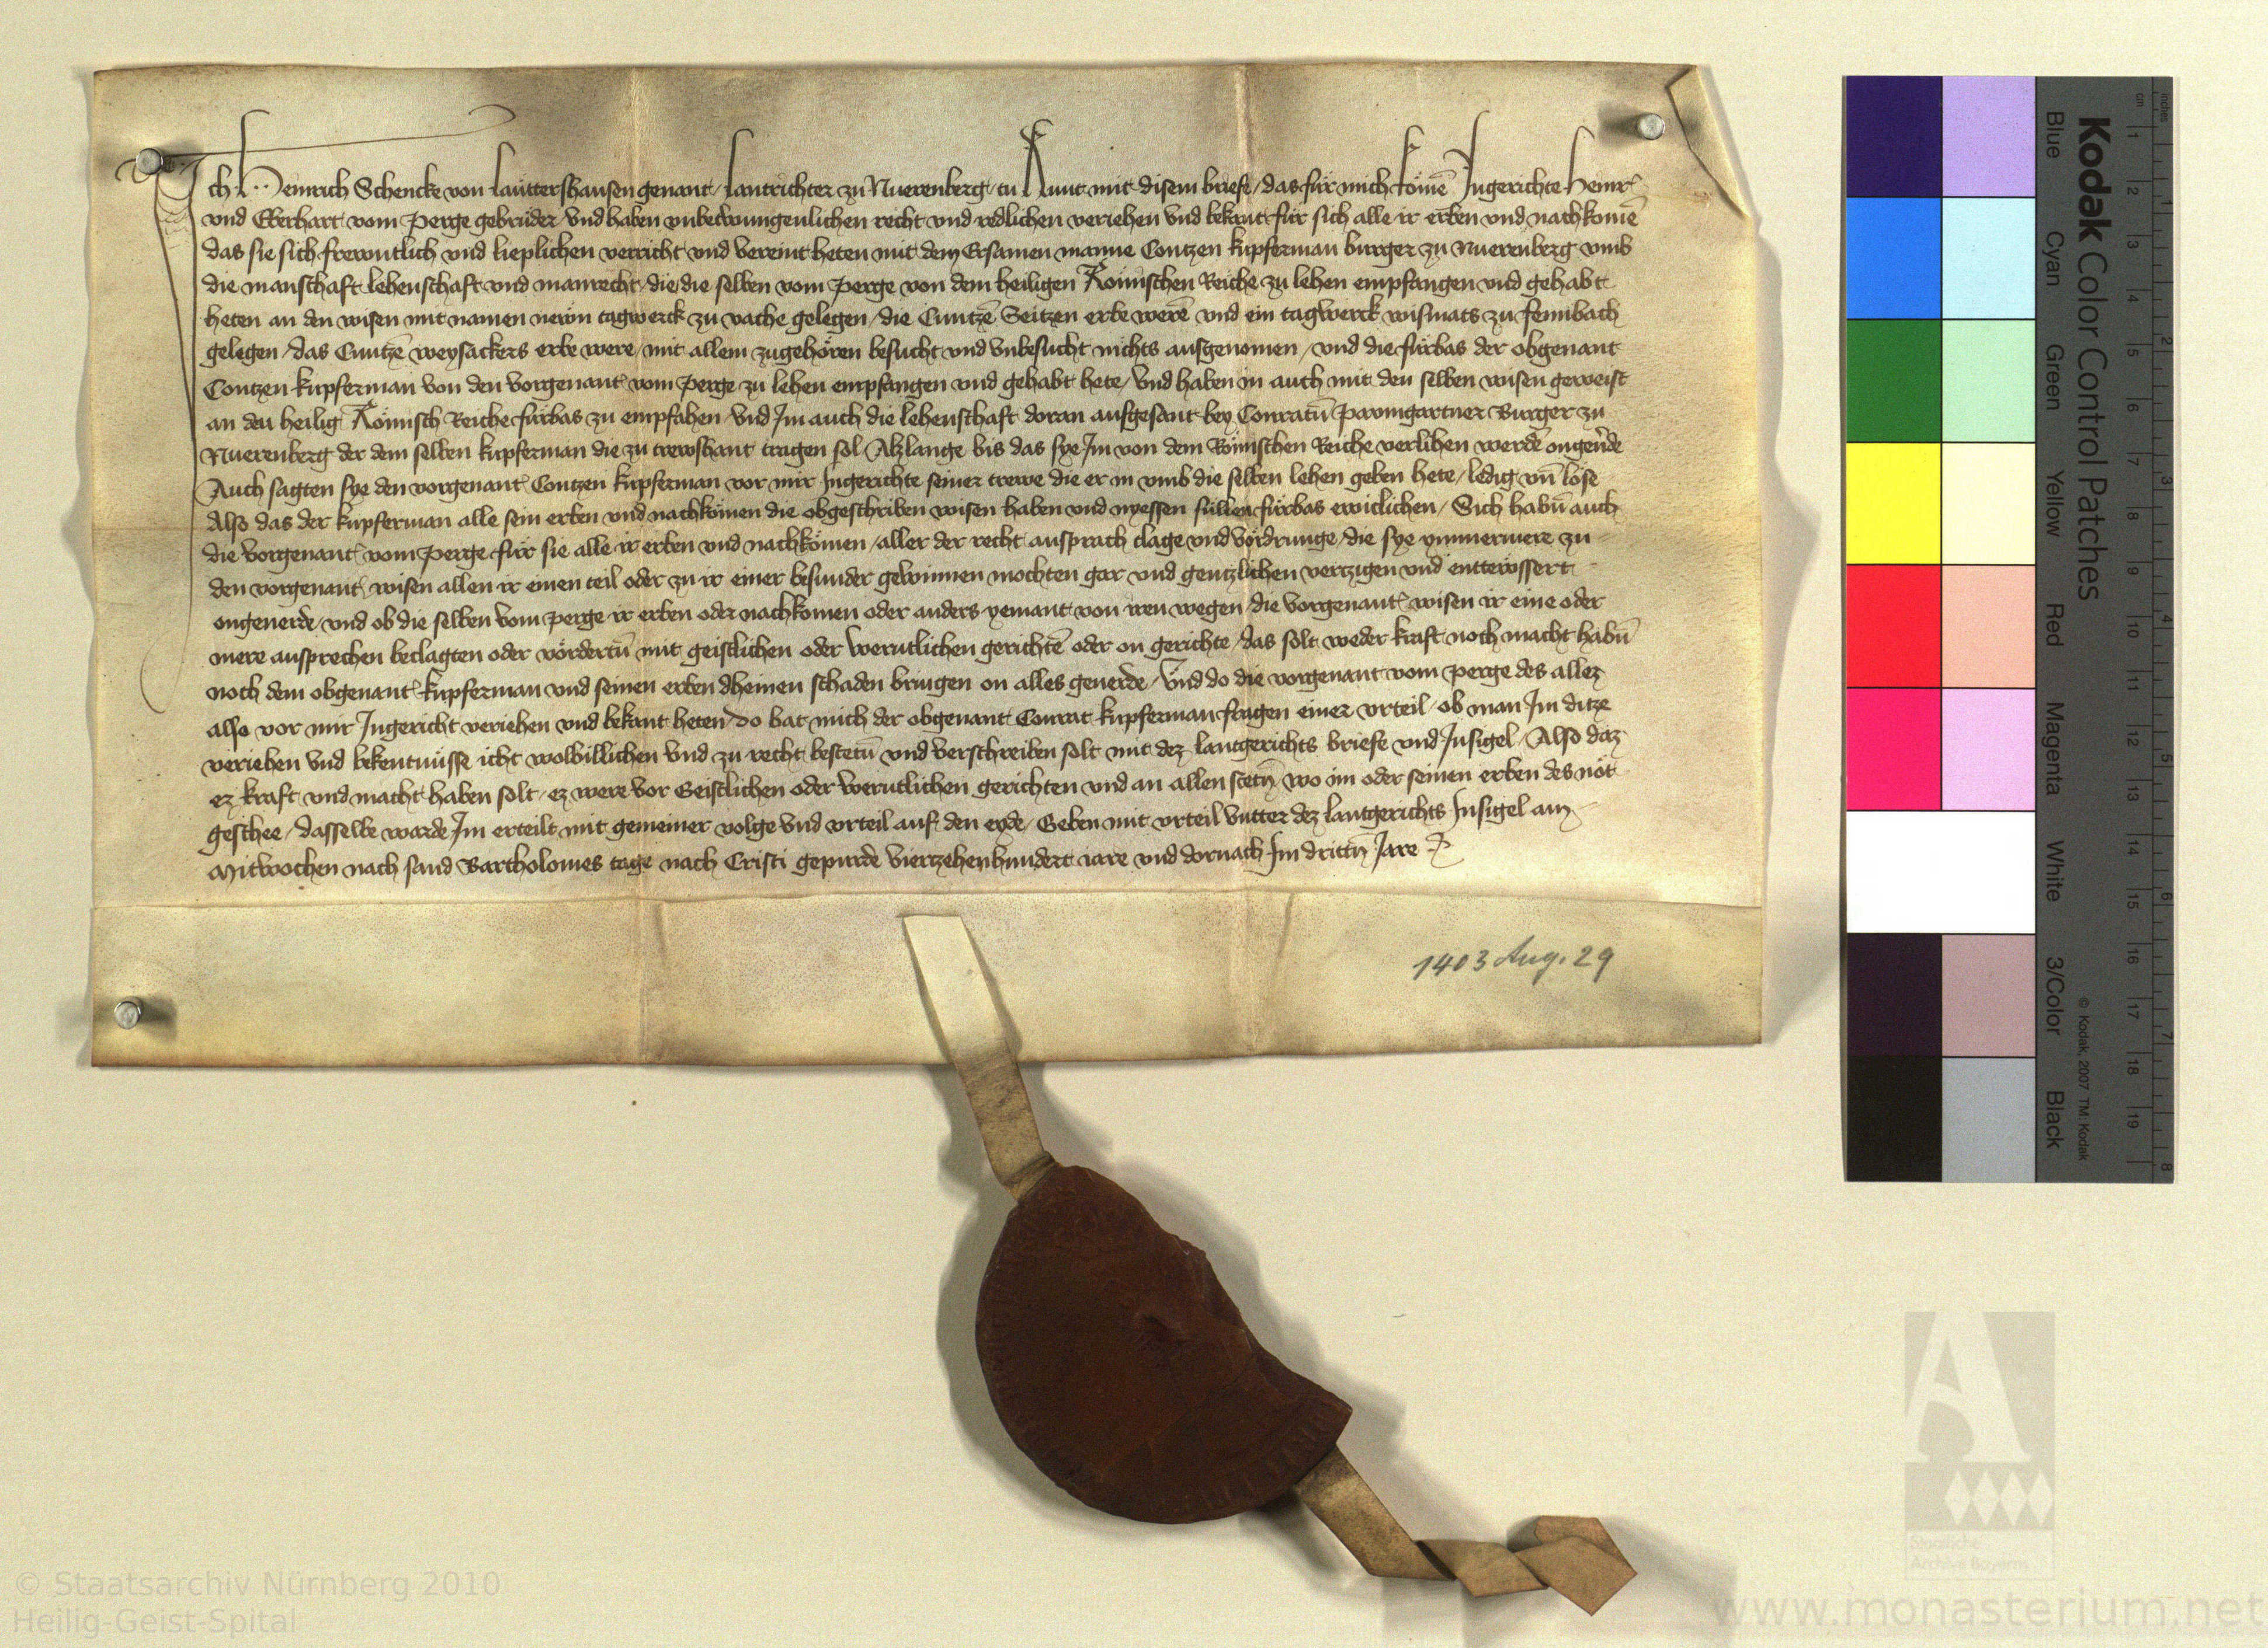 Ich Heinrich Schencke von Lauttershausen genant, Lantrichter zu Nuerenberg, tu kunt mit disem briefe, das für mich kömē Ingerichte Heinr
vnd Eberhart vom Perge gebrüder vnd haben vnbetwungenlichen recht vnd redlichen veriehen vnd bekant für sich alle ir erben vnd nachkomē
das sie sich frewntlich vnd lieplichen verricht vnd vereint heten mit dem Ersamen manne Contzen kupferman burger zu Nuerenberg vmb
die manschaft lehenschaft vnd manrecht, die die selben vom Perge von dem heiligen Römischen Reiche zu lehen empfangen vnd gehabt
heten an den wisen mit namen newn tagwerck zu vache gelegen, die Cuntzē Seitzen erbe werē vnd ein tagwerck wismats zu fennbach
gelegen, das Cuntzē weysackers erbe were, mit allem zugehören besucht vnd vnbesucht nichts ausgenomen, vnd die fürbas der obgenant
Contzen kupferman von den vorgenant vom Perge zu lehen empfangen vnd gehabt hete, vnd haben in auch mit den selben wisen geweist
an den heilig Römisch Reiche fürbas zu empfahen, vnd Im auch die lehenschaft doran aufgesant bey Conratū Pawmgartner Burger zu
Nuerenberg der dem selben kupferman die zu trewshant tragen sol Alzlange bis das sye Im von dem Römischen Reiche verlihen werdē ongeūde
Auch sagten sye den vorgenant Contzen kupferman vor mir Ingerichte seiner trewe die er in vmb die selben lehen geben hete, ledig vn̄ löse
Also das der kupferman alle sein erben vnd nachkömen die obgeschriben wisen haben vnd nyessen süllen fürbas ewiclichen, Sich habū auch
die vorgenant vom Perge für sie alle ir erben vnd nachkömen, aller der recht ansprach clage vnd vördrunge, die sye ymmermere zu
den vorgenant wisen allen ir einen teil oder zu ir einer besunder gewinnen mochten gar vnd gentzlichen vertzigen vnd entewssert
ongeuerde, vnd ob die selben vom perge ir erben oder nachkomen oder anders yemant von iren wegen, die vorgenant wisen ir eine oder
mere ansprechen beclagten oder vördertū mit geistlichen oder werntlichen gerichtē oder on gerichte, das solt weder kraft noch macht habū
noch dem obgenant kupferman vnd seinen erben dheinen schaden bringen on alles geuerde, Vnd do die vorgenant vom perge des allez
also vor mir Ingericht veriehen vnd bekant heten, do bat mich der obgenant Conrat kupferman fragen einer vrteil, ob man Im ditze
veriehen vnd bekentnüsse icht wolbillichen vnd zu recht bestetū vnd verschreiben solt mit dez lantgerichts briefe vnd Insigel, Also daz
ez kraft vnd macht haben solt, ez were vor Geistlichen oder werntlichen gerichten vnd an allen stetn̄ wo im oder seinen erben des nöt
geschee, dasselbe warde Im erteilt mit gemeiner volge vnd vrteil auf den eyde, Geben mit vrteil vntter dez lantgerichts Insigel am
Mitwochen nach sand Bartholomes tage nach Cristi gepurde viertzehenhundert iare vnd dornach Im drittn̄ Jare
1403 Aug. 29
Kodak Color Control Patches
Blue Cyan Green Yellow Red Magenta White 3/Color Black
© Kodak, 2007 TM: Kodak
cm 1 2 3 4 5 6 7 8 9 10 11 12 13 14 15 16 17 18 19
inches 1 2 3 4 5 6 7 8
Staatliche
Archive Bayerns
© Staatsarchiv Nürnberg 2010
Heilig-Geist-Spital
www.monasterium.net